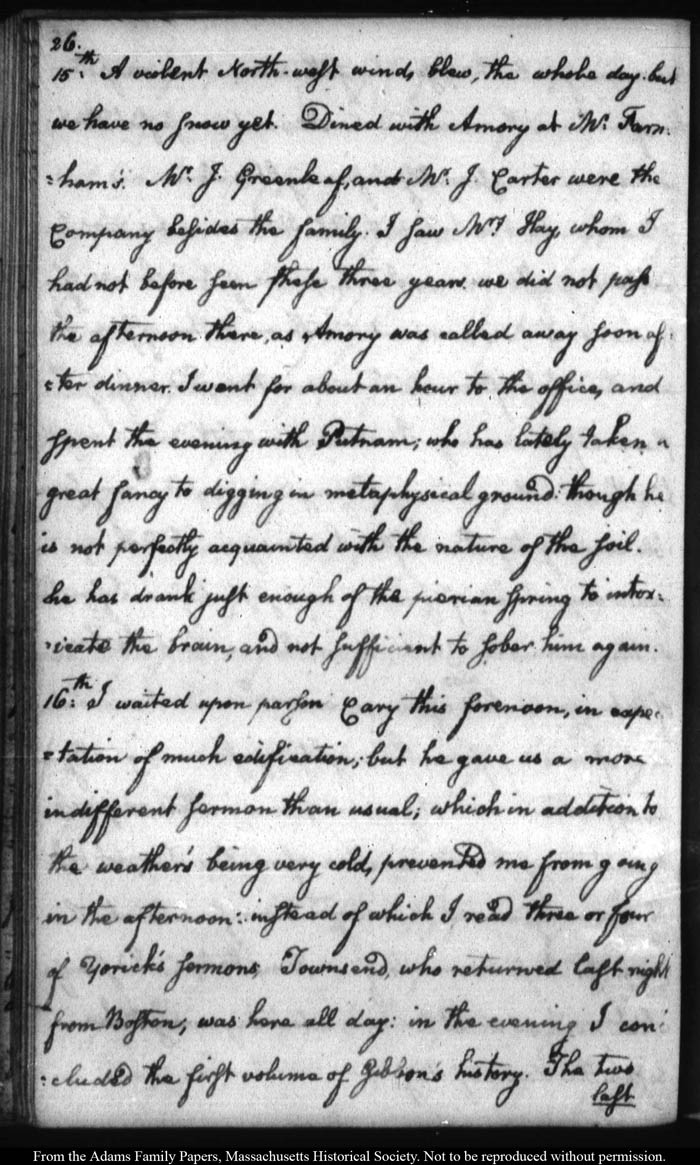 26.
15:th A violent North-west wind, blew, the whole day. but
we have no snow yet. Dined with Amory at Mr. Farn:
:ham's. Mr. J. Greenleaf, and Mr. J. Carter were the
Company besides the family. I saw Mrs. Hay, whom I
had not before seen these three years. we did not pass
the afternoon there, as Amory was called away soon af:
:ter dinner. I went for about an hour to the office, and
spent the evening with Putnam; who has lately taken a
great fancy to digging in metaphysical ground: though he
is not perfectly acquainted with the nature of the soil.
he has drank just enough of the pierian spring to intox:
:icate the brain, and not sufficient to sober him again.
16:th I waited upon parson Cary this forenoon, in expec:
:tation of much edification; but he gave us a more
indifferent sermon than usual; which in addition to
the weather's being very cold, prevented me from going
in the afternoon: instead of which I read three or four
of Yorick's sermons, Townsend, who returned last night
from Boston, was here all day: in the evening I con:
:cluded the first volume of Gibbon's history. The two
last
From the Adams Family Papers, Massachusetts Historical Society. Not to be reproduced without permission.